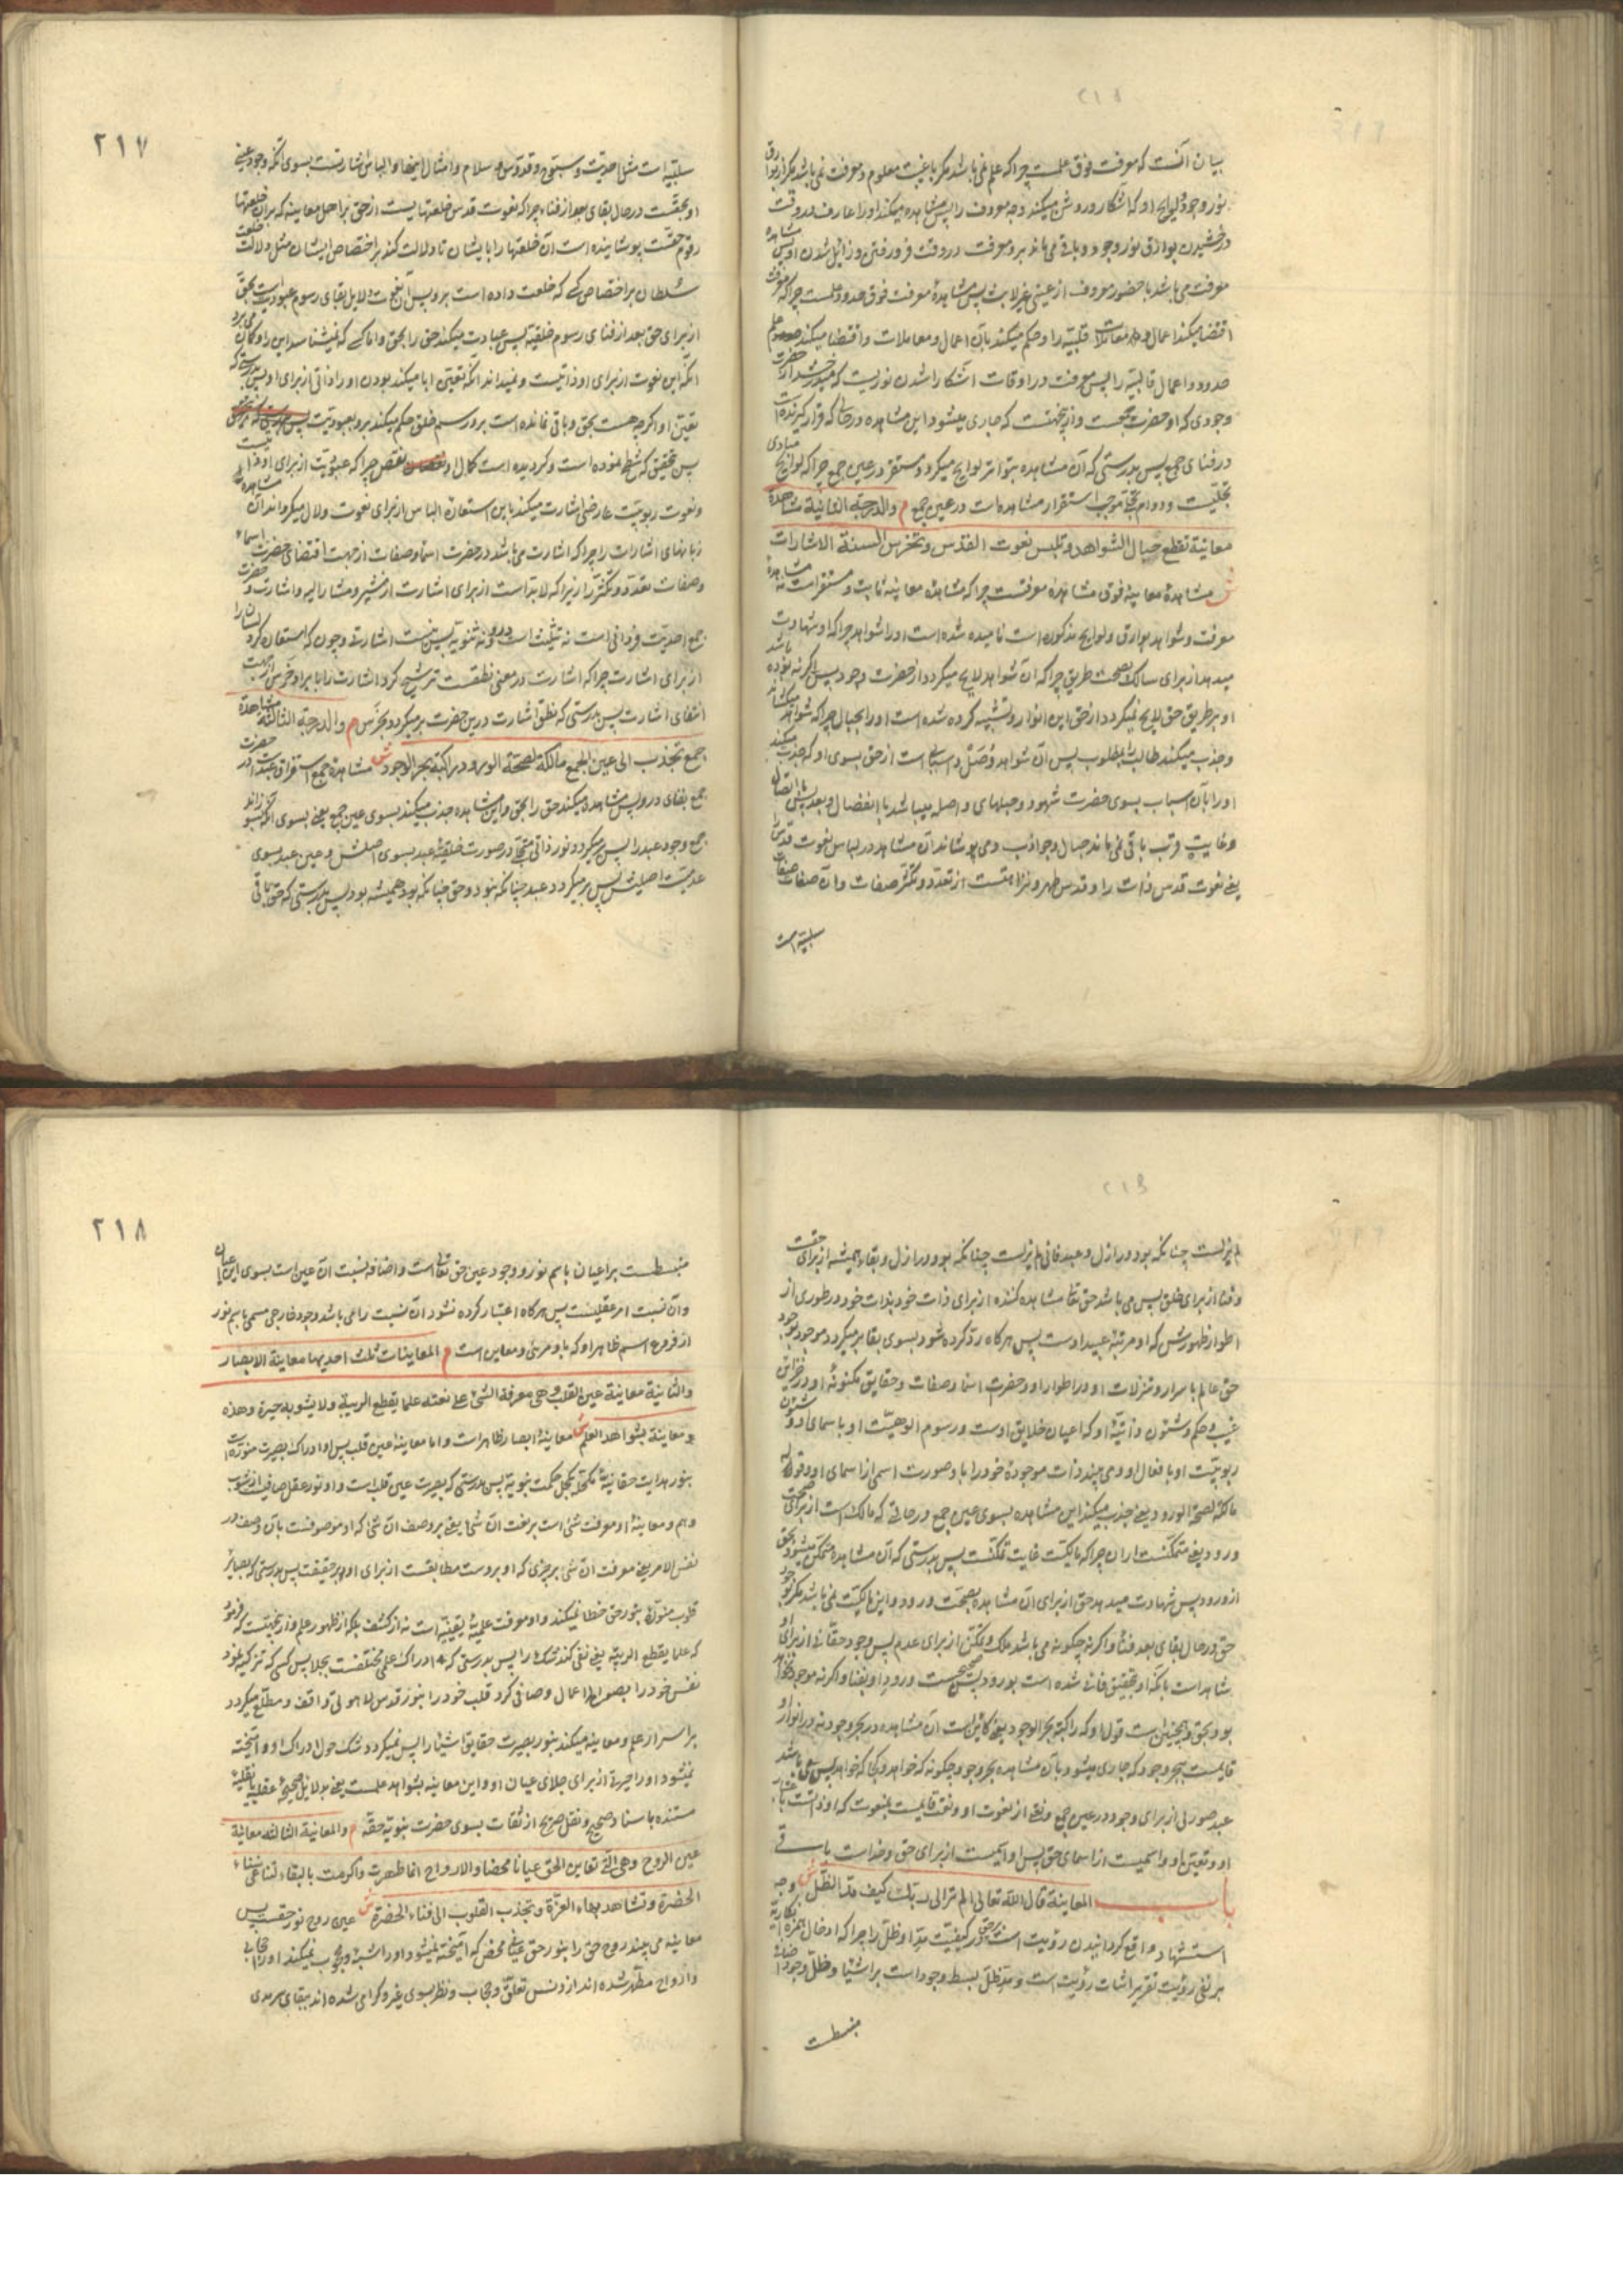 بیان آنست که معرفت فوق علمست چرا که علم نمی باشد مکر با غیبت معلوم و معرفت نمی باشد مکر از بوارق
نور وجود و لوایح او که آشکار و روشن میکند وجه معروف را پس مشاهده میکند او را عارف در وقت
درخشیدن بوارق نور وجود و باقی می ماند برو معرفت در وقت فرو رفتن و زائل شدن او پس مشاهده
معرفت می باشد با حضور معروف از عینی غیر لابث پس مشاهدهٔ معرفت فوق حدود علمست چرا که معرفت
اقتضا میکند اعمال و معاملات قلبیه را و حکم میکند بآن اعمال و معاملات و اقتضا میکند علم
حدود و اعمال قالبیه را پس معرفت در اوقات آشکارا شدن نوریست که میدرخشد از حضرت
وجودی که او حضرت جمعست و از بجهتست که جاری میشود این مشاهده در حالی که قرار کیرنده است
در فنای جمع پس بدرستی که آن مشاهده بتواتر لوایح میکردد مستقر در عین جمع چرا که لوایح مبادی
تجلیست و دوام تجلی موجب استقرار مشاهدات در عین جمع م والدرجة الثانیة مشاهدة
معاینة تقطع حبال الشواهد و تلبس نعوت القدس و تخرس السنة الاشارات
ش مشاهدهٔ معاینه فوق مشاهده معرفتست چرا که مشاهدهٔ معاینه ثابت و مستقر است نه مشاهدهٔ
معرفت و شواهد بوارق و لوایح مذکوره است نامیده شده است او را شواهد چرا که او شهادت
میدهد از برای سالک بصحت طریق چرا که آن شواهد لایح میکردد از حضرت وجود پس اکر نه بوده باشد
او بر طریق حق لایح نمیکردد از حق این انوار و تشبیه کرده شده است او را بحبال چرا که شواهد میکشاند
و جذب میکند طالب را بمطلوب پس آن شواهد وُصَل و اسبابی است از حق بسوی او که جذب میکند
او را بآن اسباب بسوی حضرت شهود و حبلهای واصله میباشد با انفصال و بعد پس با اتصال
و غایت قرب باقی نمی ماند حبال و جواذب و می پوشاند آن مشاهده لباس نعوت قدس را
یعنی نعوت قدس ذات را و قدس طهر و نزاهتست از تعدد و تکثر صفات و آن صفات صفات
سلبیه است
۲۱۷
سلبیه است مثل احدیت و سبوح و قدوس و سلام و امثال اینها و الباس اشارتست بسوی آنکه وجود عینی
او بحقست در حال بقای بعد از فناء چرا که نعوت قدس خلعتهایست از حق بر اهل معاینه که بر آن خلعتها
رقوم حقست پوشاینده است آن خلعتها را بایشان تا دلالت کند بر اختصاص ایشان مثل دلالت خلعت
سلطان بر اختصاص کسی که خلعت داده است برو پس آن نعوت دلایل بقای رسوم عبودیتست بحق
از برای حق بعد از فنای رسوم خلقیه پس عبادت میکند حق را بحق و اما کسی که نمیشناسد این را و کمان می برد
آنکه این نعوت از برای او ذاتیست و نمیداند آنکه تعین ابا میکند بودن او را ذاتی از برای او پس بدرستی که
تعین او اکرچه هست بحق و باقی نمانده است برو رسم خلق حکم میکند برو بعبودیت
پس بتحقیق که شطح نموده است و کردیده است کمال او نقص چرا که عبودیت از برای او ذاتیست
و نعوت ربوبیت عارضی اشارت میکند باین استعاره الباس از برای نعوت و لال میکرداند آن مشاهده
زبانهای اشارات را چرا که اشارت می باشد در حضرت اسما و صفات از جهت اقتضای حضرت اسماء
و صفات تعدد و تکثر را زیرا که لابد است از برای اشارت از مشیر و مشار الیه و اشارت و حضرت
جمع احدیت فردانی است نه تثلیث است درو و نه ثنویه پس نیست اشارتی و چون که استعاره کرد لسان را
از برای اشارت چرا که اشارت در معنی نطقست ترشیح کرد اشارت را بابراد خرس از جهت
انتفای اشارت پس بدرستی که نطق اشارت درین حضرت بر میکردد بخَرَس م والدرجة الثالثة مشاهدة
جمع تجذب الی عین الجمع مالکة لصحة الورود راکبة بحر الوجود ش مشاهدهٔ جمع استغراق عبد است در حضرت
جمع بفنای درو پس مشاهده میکند حق را بحق و این مشاهده جذب میکند بسوی عین جمع یعنی بسوی آنکه
جمع وجود عبد را پس بر میکردد نور ذاتی متجلی در صورت خلقیه عبد بسوی اصلش و عین عبد بسوی
عدمیت اصلیش پس بر میکردد عبد چنانکه نبود و حق چنانکه بود همیشه بود پس بدرستی که حق باقی
لم یزلست چنانکه بود در ازل و عبد فانی لم یزلست چنانکه بود در ازل و بقاء همیشه از برای حقست
و فنا از برای خلق پس می باشد حق تعالی مشاهده کننده از برای ذات خود بذات خود در طوری از
اطوار ظهورش که او مرتبهٔ عبید اوست پس هرکاه رد کرده شود بسوی بقا بر میکردد موجود بوجود
حق عالم باسرار و تنزلات او در اطوار او و حضرت اسما و صفات و حقایق مکنونهٔ او در خزاین
غیب و حکم و شئون ذاتیهٔ او که اعیان خلایق اوست و رسوم الوهیت او باسمای او و شئون
ربوبیت او بافعال او و می بیند ذات موجودهٔ خود را با و صورت اسمی از اسمای او و قوله
مالکة لصحة الورود یعنی جذب میکند این مشاهده بسوی عین جمع در حالتی که مالک است از برای صحت
ورود یعنی متمکنست از آن چرا که مالکیت غایت تمکنست پس بدرستی که آن مشاهده متمکن میشود بحق
از ورود پس شهادت میدهد حق از برای آن مشاهده بصحت ورود و این مالکیت نمی باشد مکر بوجود
حق در حال بقای بعد فنا و اکرنه چکونه می باشد ملک و تمکن از برای عدم پس وجود حقانی از برای او
شاهد است بآنکه او بتحقیق فانی شده است بورود پس صحیحست ورود او بفنا و اکرنه موجود نخواهد
بود بحق و همچنین است قول او که راکبة بحر الوجود یعنی کائن است آن مشاهده در بحر وجود نه در انوار او
قایمست ببحر وجود که جاری میشود بآن مشاهده بحر وجود چکونه که خواهد و کجا که خواهد پس می باشد
عبد صورتی از برای وجود در عین جمع و نعتی از نعوت او و نعت قایمست بمنعوت که او ذاتست باعتبار
او و تعین او و اسمیست از اسمای حق پس او آیتیست از برای حق و خداست باقی
باب المعاینة قال الله تعالی الم تر الی ربک کیف مد الظل ش وجه
استشهاد واقع کردانیدن رؤیت است بر حق در کیفیت مد او ظل را چرا که ادخال همزه انکاریه
بر نفی رؤیت تقریر اثبات رؤیت است و مد ظل بسط وجود است بر اشیا و ظل وجود اضافی
منبسطست
۲۱۸
منبسطست بر اعیان باسم نور و وجود عین حق تعالی است و اضافه نسبت آن عین است بسوی این اعیان
و آن نسبت امر عقلیست پس هرکاه اعتبار کرده نشود آن نسبت را می باشد وجود خارجی مسمی باسم نور
از فروع اسم ظاهر او که باو مرئی و معاین است م المعاینات ثلث احدیها معاینة الابصار
والثانیة معاینة عین القلب و هی معرفة الشیء علی نعته علما یقطع الریبة و لا یشوبه حیرة و هذه
معاینة بشواهد العلم ش معاینهٔ ابصار ظاهر است و اما معاینهٔ عین قلب پس او ادراک بصیرت منوره است
بنور هدایت حقانیه مکتحله بکحل حکمت نبویه پس بدرستی که بصیرت عین قلب است و او نور عقل صافیست از شوب
وهم و معاینهٔ او معرفت شیء است بر نعت آن شیء یعنی بر وصف آن شیء که او موصوفست بآن وصف در
نفس الامر یعنی معرفت آن شیء بر چیزی که او بروست مطابقست از برای او بر حقیقت پس بدرستی که بصایر
قلوب منوّره بنور حق خطا نمیکند و او معرفت علمیهٔ یقینیه است نه از کشف بلکه از ظهور علم و از بجهتست که فرمود
که علما یقطع الریبة یعنی نفی کند شک را پس بدرستی که ادراک علمی مختلفست بجلا پس کسی که تزکیه نمود
نفس خود را بصوالح اعمال و صافی کرد قلب خود را بنور قدس لاهوتی واقف و مطلع میکردد
بر اسرار علم و معاینه میکند بنور بصیرت حقایق اشیا را پس نمیکردد شک حول ادراک او و آمیخته
نمیشود او را حیرتی از برای جلای عیان او و این معاینه بشواهد علمست یعنی بدلایل صحیحهٔ عقلیه یا نقلیه
مستنده باسناد صحیح و نقل صریح از ثقات بسوی حضرت نبویه حقه م والمعاینة الثالثة معاینة
عین الروح و هی التی تعاین الحق عیانا محضا والارواح انما طهرت و اکرمت بالبقاء لتناغی سناء
الحضرة و تشاهد بهاء العزة و تجذب القلوب الی فناء الحضرة ش عین روح نور حقست پس
معاینه می بیند روح حق را بنور حق عیانی محض که آمیخته نمیشود او را شبه و محجوب نمیکند او را حجابی
و ارواح مطهر شده اند از دنس تعلق و حجاب و نظر بسوی غیر و کرامی شده اند ببقای سرمدی